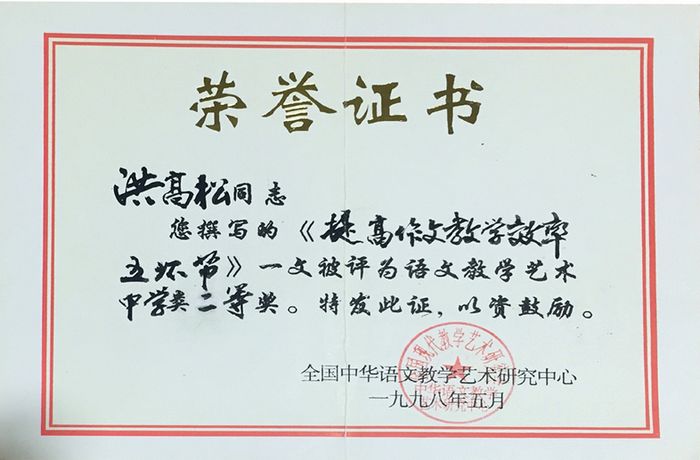 荣誉证书
洪高松同志
您撰写的《提高作文教学效率
五环节》一文被评为语文教学艺术
中学类二等奖。特发此证，以资鼓励。
全国中华语文教学艺术研究中心
一九九八年五月